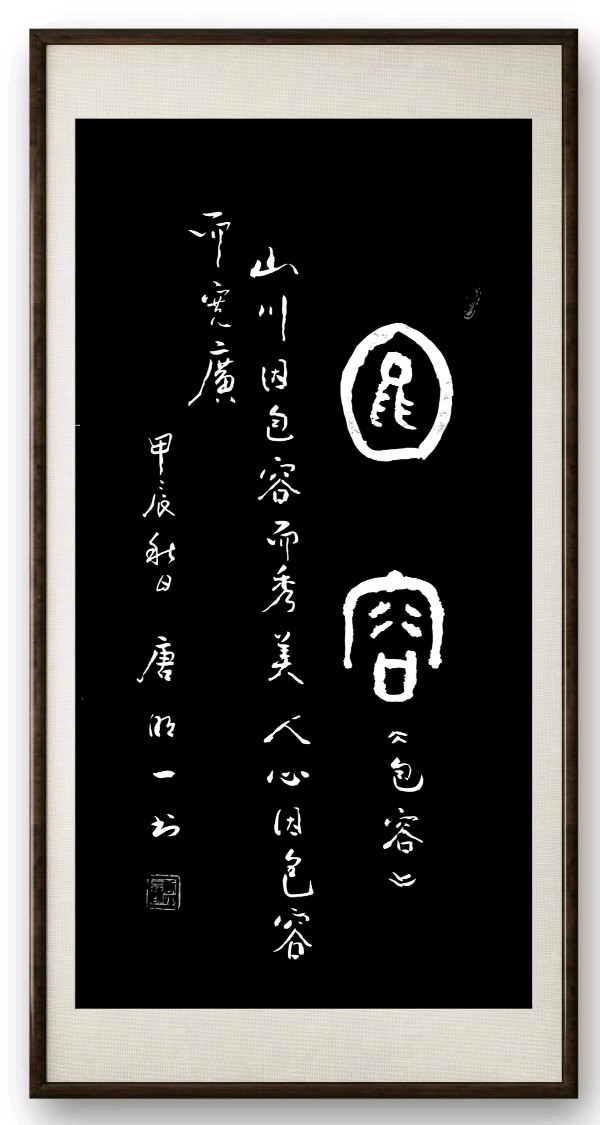 包容
《包容》
山川因包容而秀美人心因包容
而寬廣
甲辰秋日 唐明一书